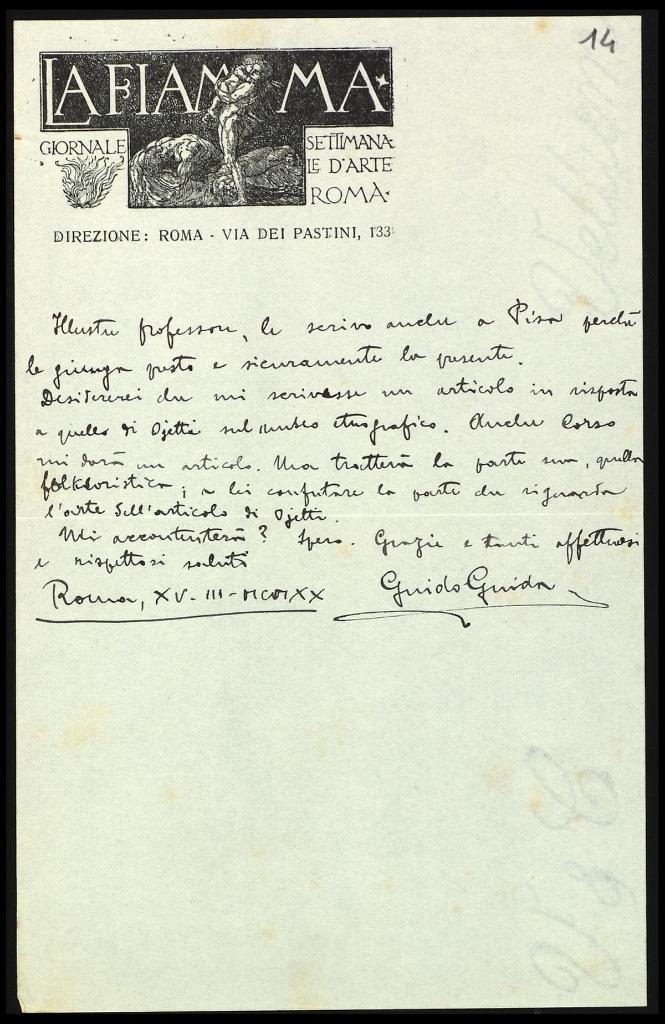 14
LA FIAMMA
GIORNALE SETTIMANA
LE D'ARTE
ROMA
DIREZIONE: ROMA - VIA DEI PASTINI, 133
Illustre professore, le scrivo anche a Pisa perchè
le giunga presto e sicuramente la presente.
Desidererei che mi scrivesse un articolo in risposta
a quello di Ojetti sul museo etnografico. Anche Corso
mi darà un articolo. Ma tratterà la parte sua, quella
folkloristica; a lei confutare la parte che riguarda
l'arte dell'articolo di Ojetti.
Mi accontenterà? Spero. Grazie e tanti affettuosi
e rispettosi saluti
Roma, XV-III-
Guido Guida